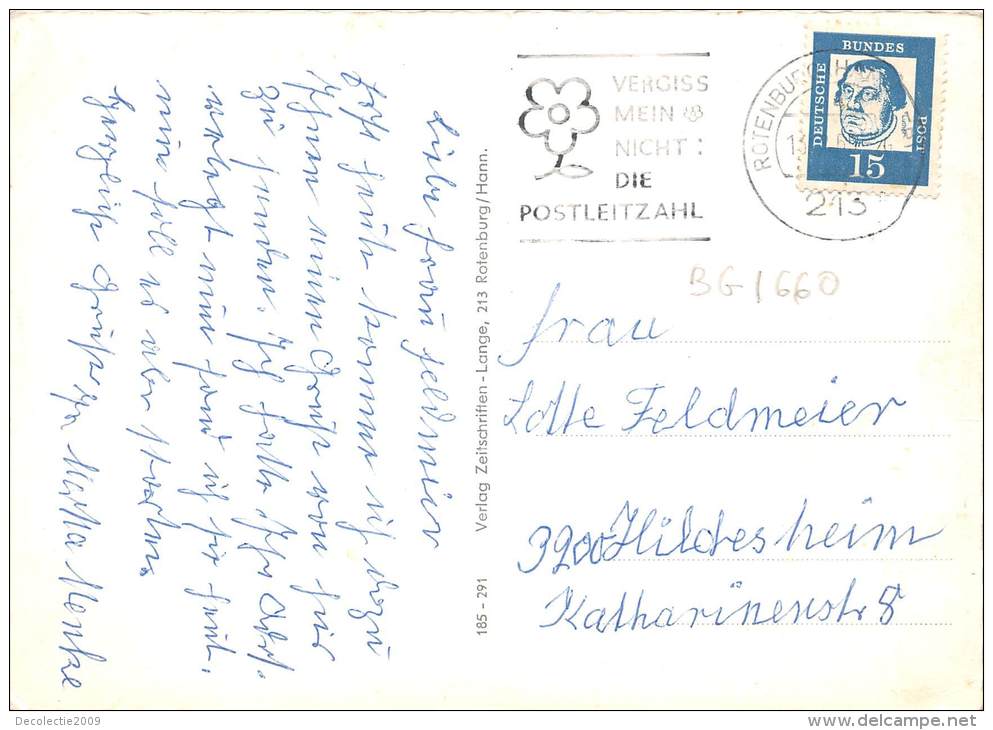 Liebe Frau Feldmeier
Erst heute komme ich dazu
Ihnen einen Gruß von hier
zu senden. Ich hatte Ihre Adr.
verlegt nun fand ich sie heut.
nun soll es aber
Herzliche Grüße Ihre
185 - 291 Verlag Zeitschriften - Lange, 213 Rotenburg/Hann.
VERGISS
MEIN
NICHT:
DIE
POSTLEITZAHL
ROTENBURG
213
DEUTSCHE BUNDES POST
15
BG1660
Frau
Lotte Feldmeier
3200 Hildesheim
Katharinenstr 8
Decolectie2009
www.delcampe.net